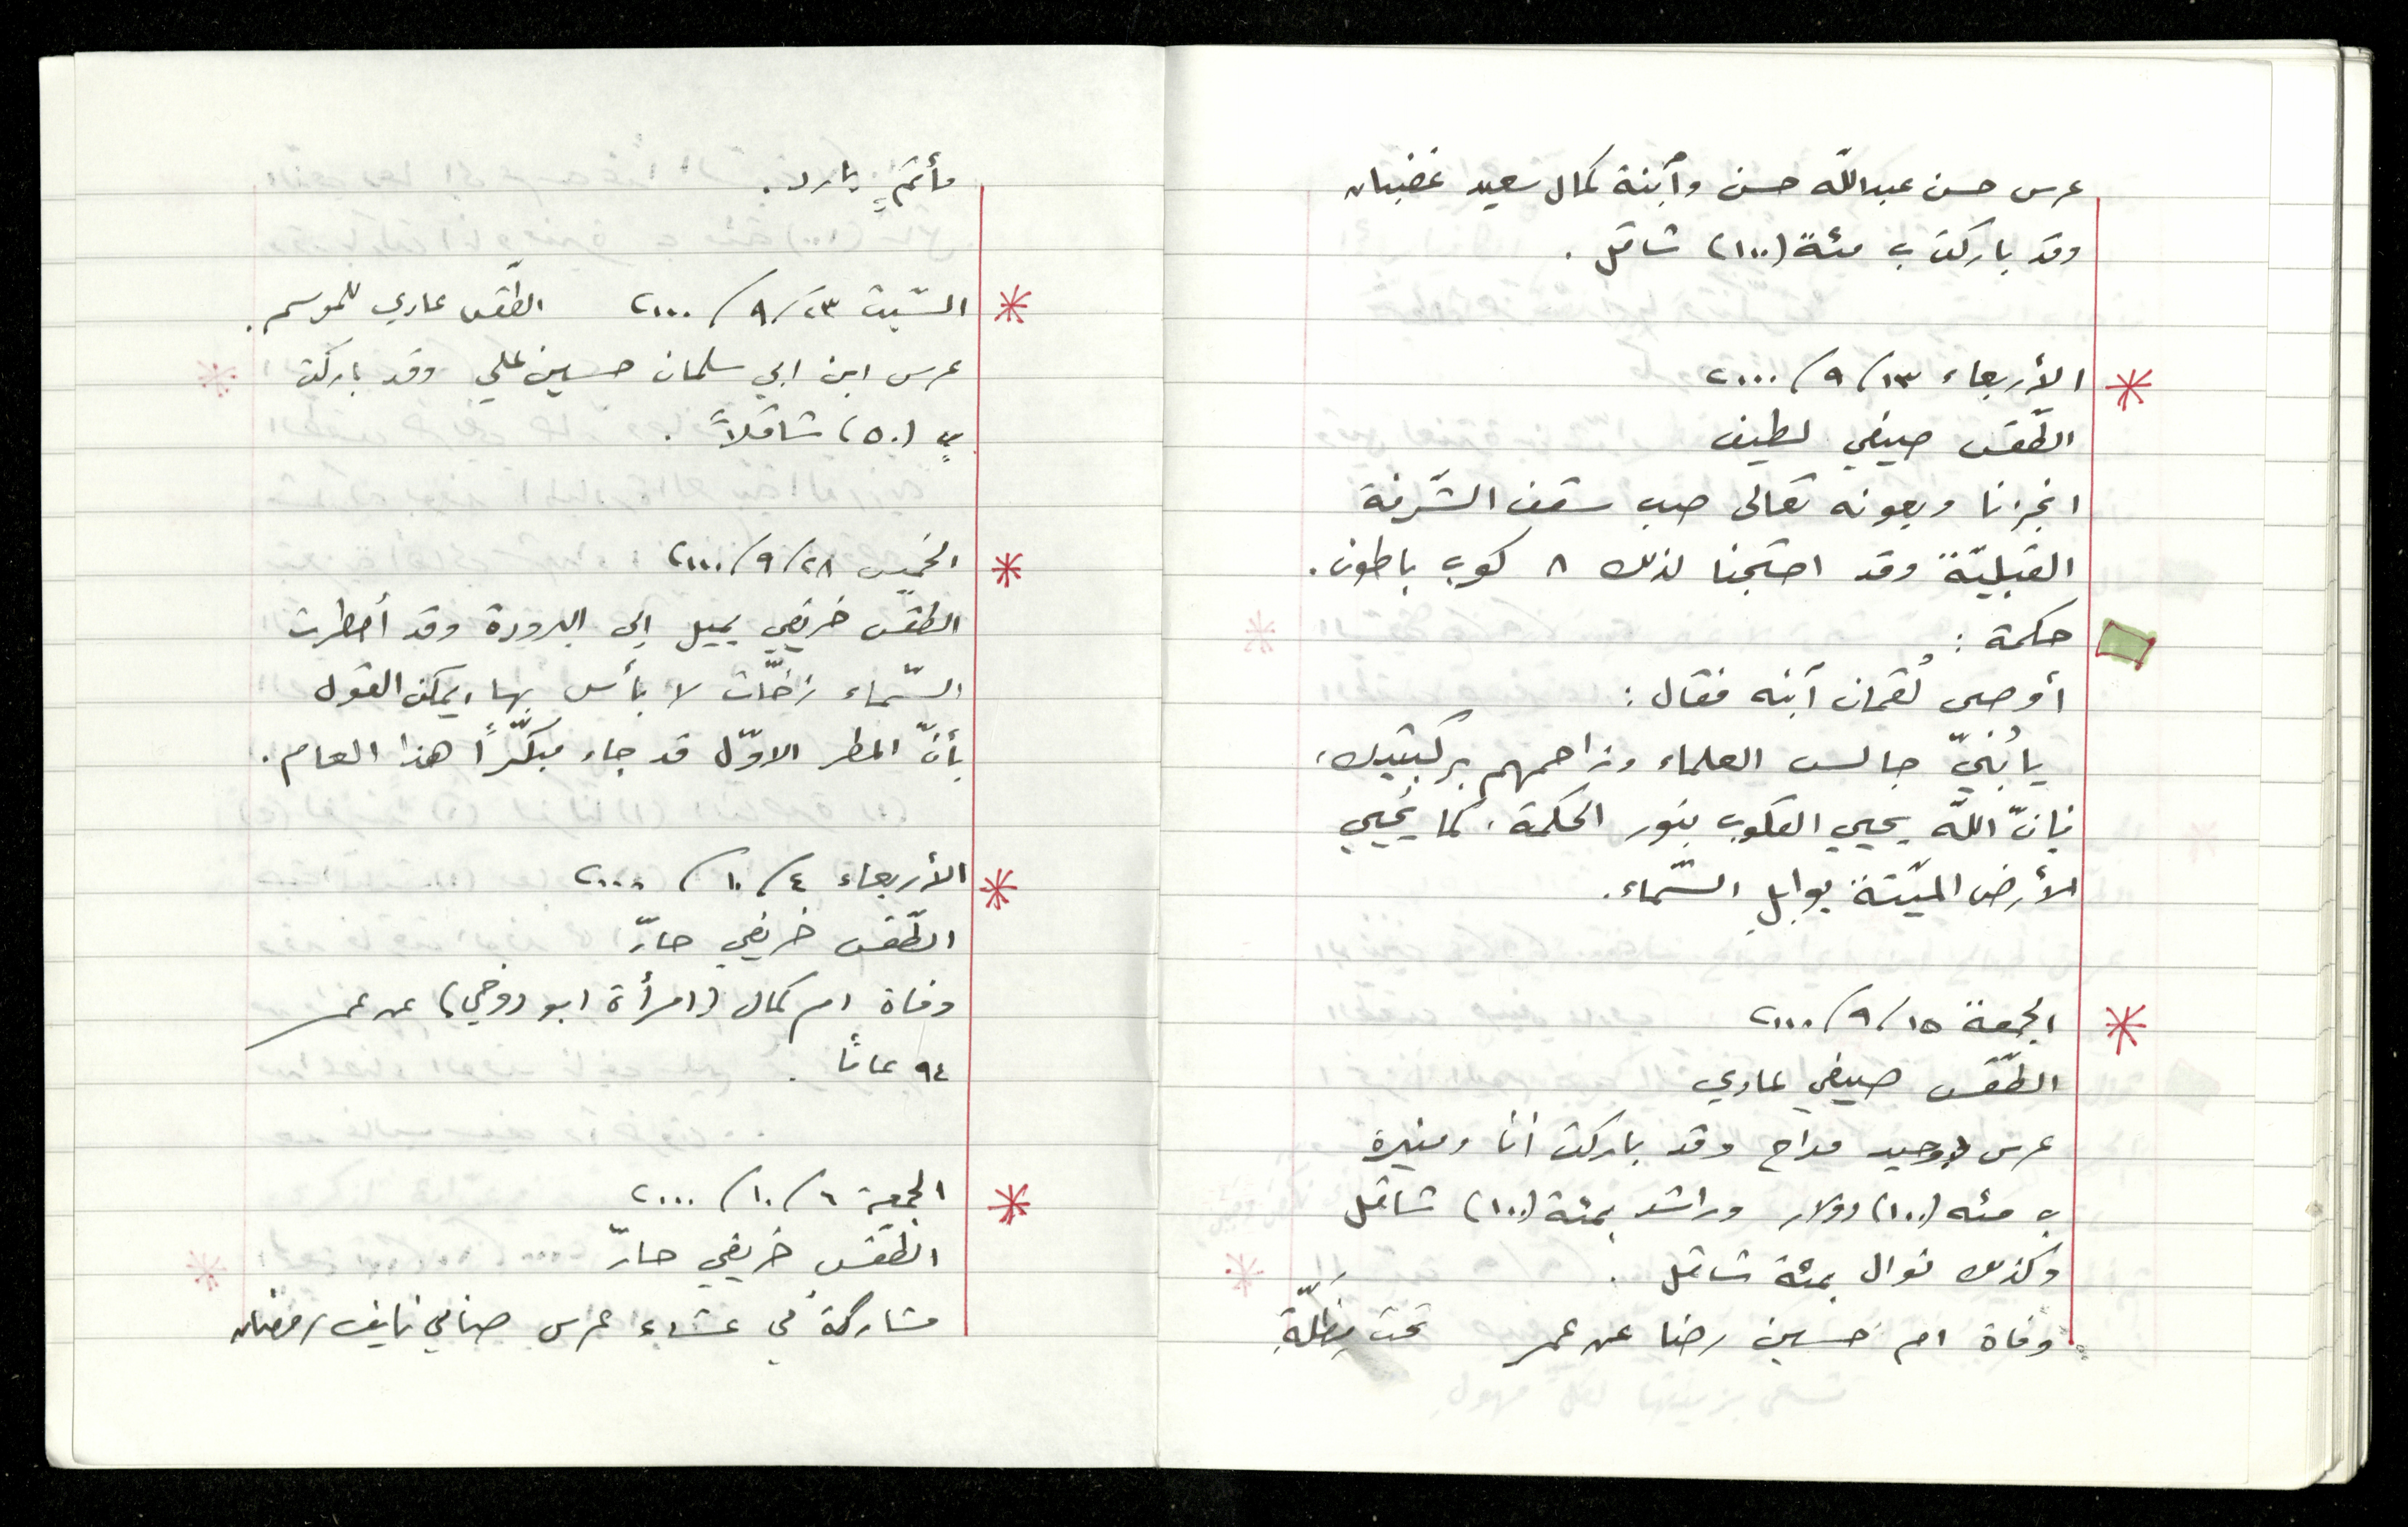 عرس حسن عبدالله حسن وٱبنة كمال سعيد غضبان
وقد باركت ب مئة (١٠٠) شاقل .
الأربعاء ١٣/ ٩/ ٢٠٠٠
الطّقس صيفي لطيف
انجزنا وبعونه تعالى صب سقف الشّرفة
القبليّة وقد احتجنا لذلك ٨ كوب باطون.
حكمة :
أوصى لُقمان ٱبنه فقال :
يا بُنيّ جالس العلماء وزاحمهم بركبتيك،
فإنّ اللّه يحيي القلوب بنور الحكمة، كما يُحيي
الأرض الميّتة بوابلِ السّماء.
الجمعة ١٥/ ٩/ ٢٠٠٠
الطّقس صيفي عادي
عرس وحيد مداح وقد باركت أنا ومنيرة
ب مئه (١٠٠) دولار وراشد بمئة (١٠٠) شاقل
وكذلك نوال بمئة شاقل .
وفاة ام حسين رضا عن عمر تحت مِظَلّةِ
مأتمٍ بارد .
السّبت ٢٣/ ٩/ ٢٠٠٠ الطّقس عادي للموسم .
عرس ابن ابي سلمان حسين علي وقد باركت
بِ (٥٠) شاقلاً .
الخميس ٢٨/ ٩/ ٢٠٠٠
الطقس خريفي يميل إلى البرودة وقد أمطرت
السّماء زخّات لا بأس بها، يمكن القول
بأنّ المطر الاوّل قد جاء مبكّرًا هذا العام .
الأربعاء ٤/ ١٠/ ٢٠٠٠
الطّقس خريفي حارّ
وفاة ام كمال (امرأة ابو روضي) عن عمر
٩٤ عامًا .
الجمعة ٦/ ١٠/ ٢٠٠٠
الطّقس خريفي حارّ
مشاركة في عشاء عرس صافي نايف رمضان